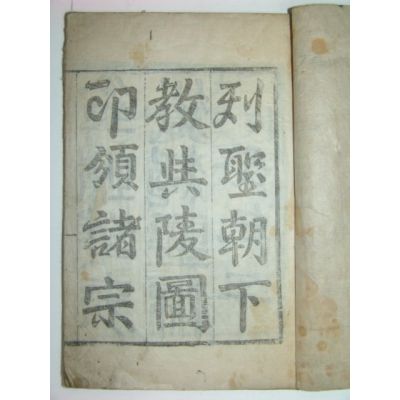 列聖朝下
教典陵圖
印頒諸宗